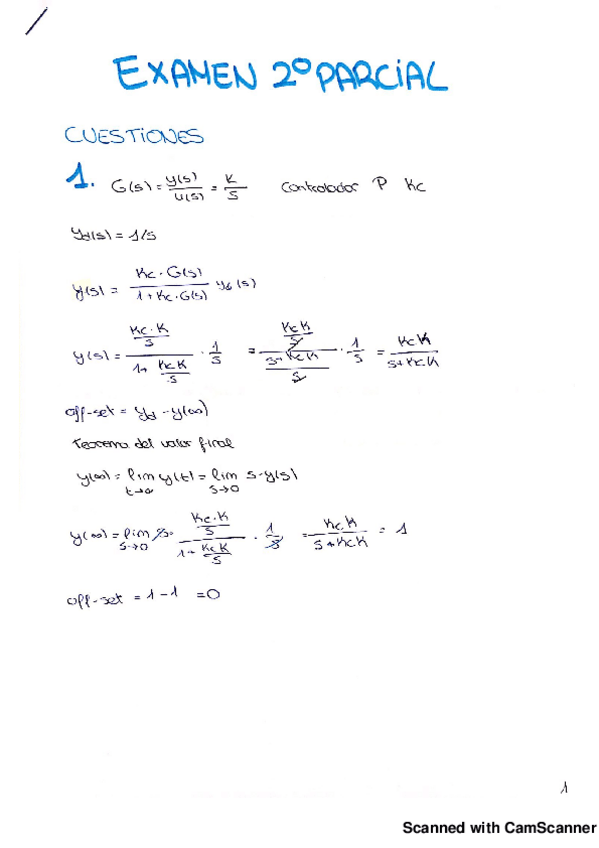 EXAMEN 2º PARCIAL
CUESTIONES
1. G(s) = y(s)/u(s) = K/S Controlador P Kc
yd(s) = 1/s
y(s) = Kc·G(s) / 1+Kc·G(s) yd(s)
y(s) = (Kc·K/S) / (1+ KcK/S) · 1/S = (KcK/S) / (S+KcK/S) · 1/S = KcK / S+KcK
off-set = yd - y(∞)
Teorema del valor final
y(∞) = lim t→∞ y(t) = lim s→0 s·y(s)
y(∞) = lim s→0 s· (Kc·K/S) / (1+ KcK/S) · 1/s = Kc.K / S+Kc.K = 1
off-set = 1-1 = 0
1
Scanned with CamScanner